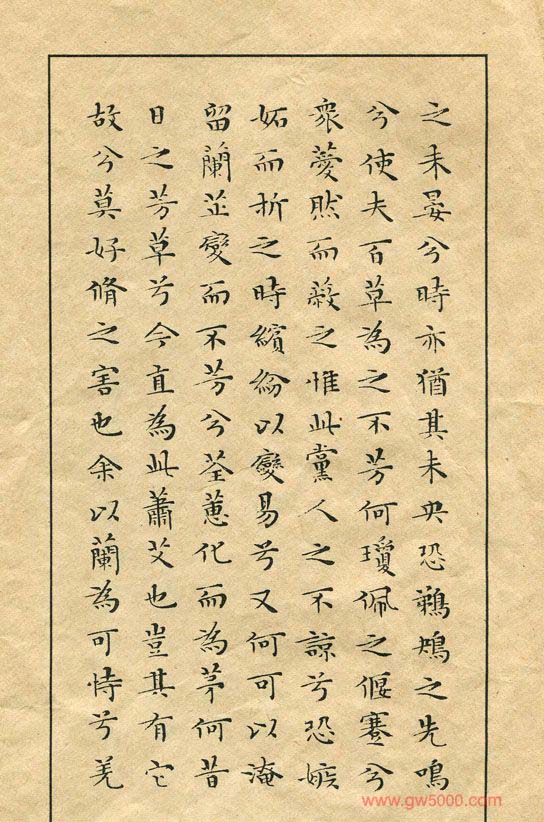 之未晏兮時亦猶其未央恐鵜鴂之先鳴
兮使夫百草為之不芳何瓊佩之偃蹇兮
衆薆然而蔽之惟此黨人之不諒兮恐嫉
妬而折之時繽紛以變易兮又何可以淹
留蘭芷變而不芳兮荃蕙化而為茅何昔
日之芳草兮今直為此蕭艾也豈其有它
故兮莫好脩之害也余以蘭為可恃兮羌
www.gw5000.com